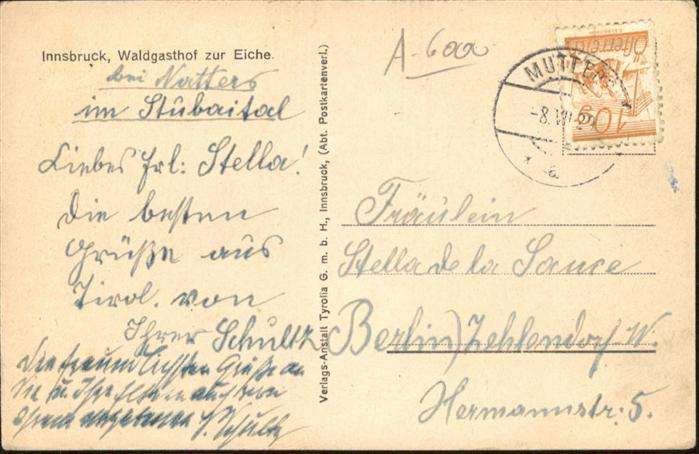 Innsbruck, Waldgasthof zur Eiche.
bei Natters
im Stubaital
Liebes Frl: Stella!
Die besten
Grüße aus
Tirol. von
Ihrer Schultz
Die freundlichsten Grüße an
Sie u. Ihre Eltern auch von
S. Schultz
Verlags-Anstalt Tyrolia G. m. b. H., Innsbruck, (Abt. Postkartenverl.)
A-6aa
MUTTERS
-8.VII.29
Österreich
10g
Fräulein
Stella de la Sauce
Berlin) Zehlendorf W.
Hermannstr. 5.